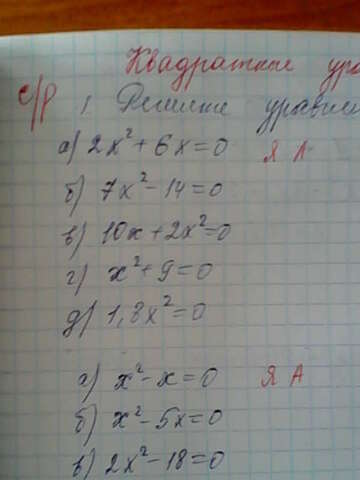 Квадратные ура
с/р 1 Решите уравне
а) 2x² + 6x = 0 Я Л
б) 7x² - 14 = 0
в) 10x + 2x² = 0
г) x² + 9 = 0
д) 1,8x² = 0
а) x² - x = 0 Я А
б) x² - 5x = 0
в) 2x² - 18 = 0